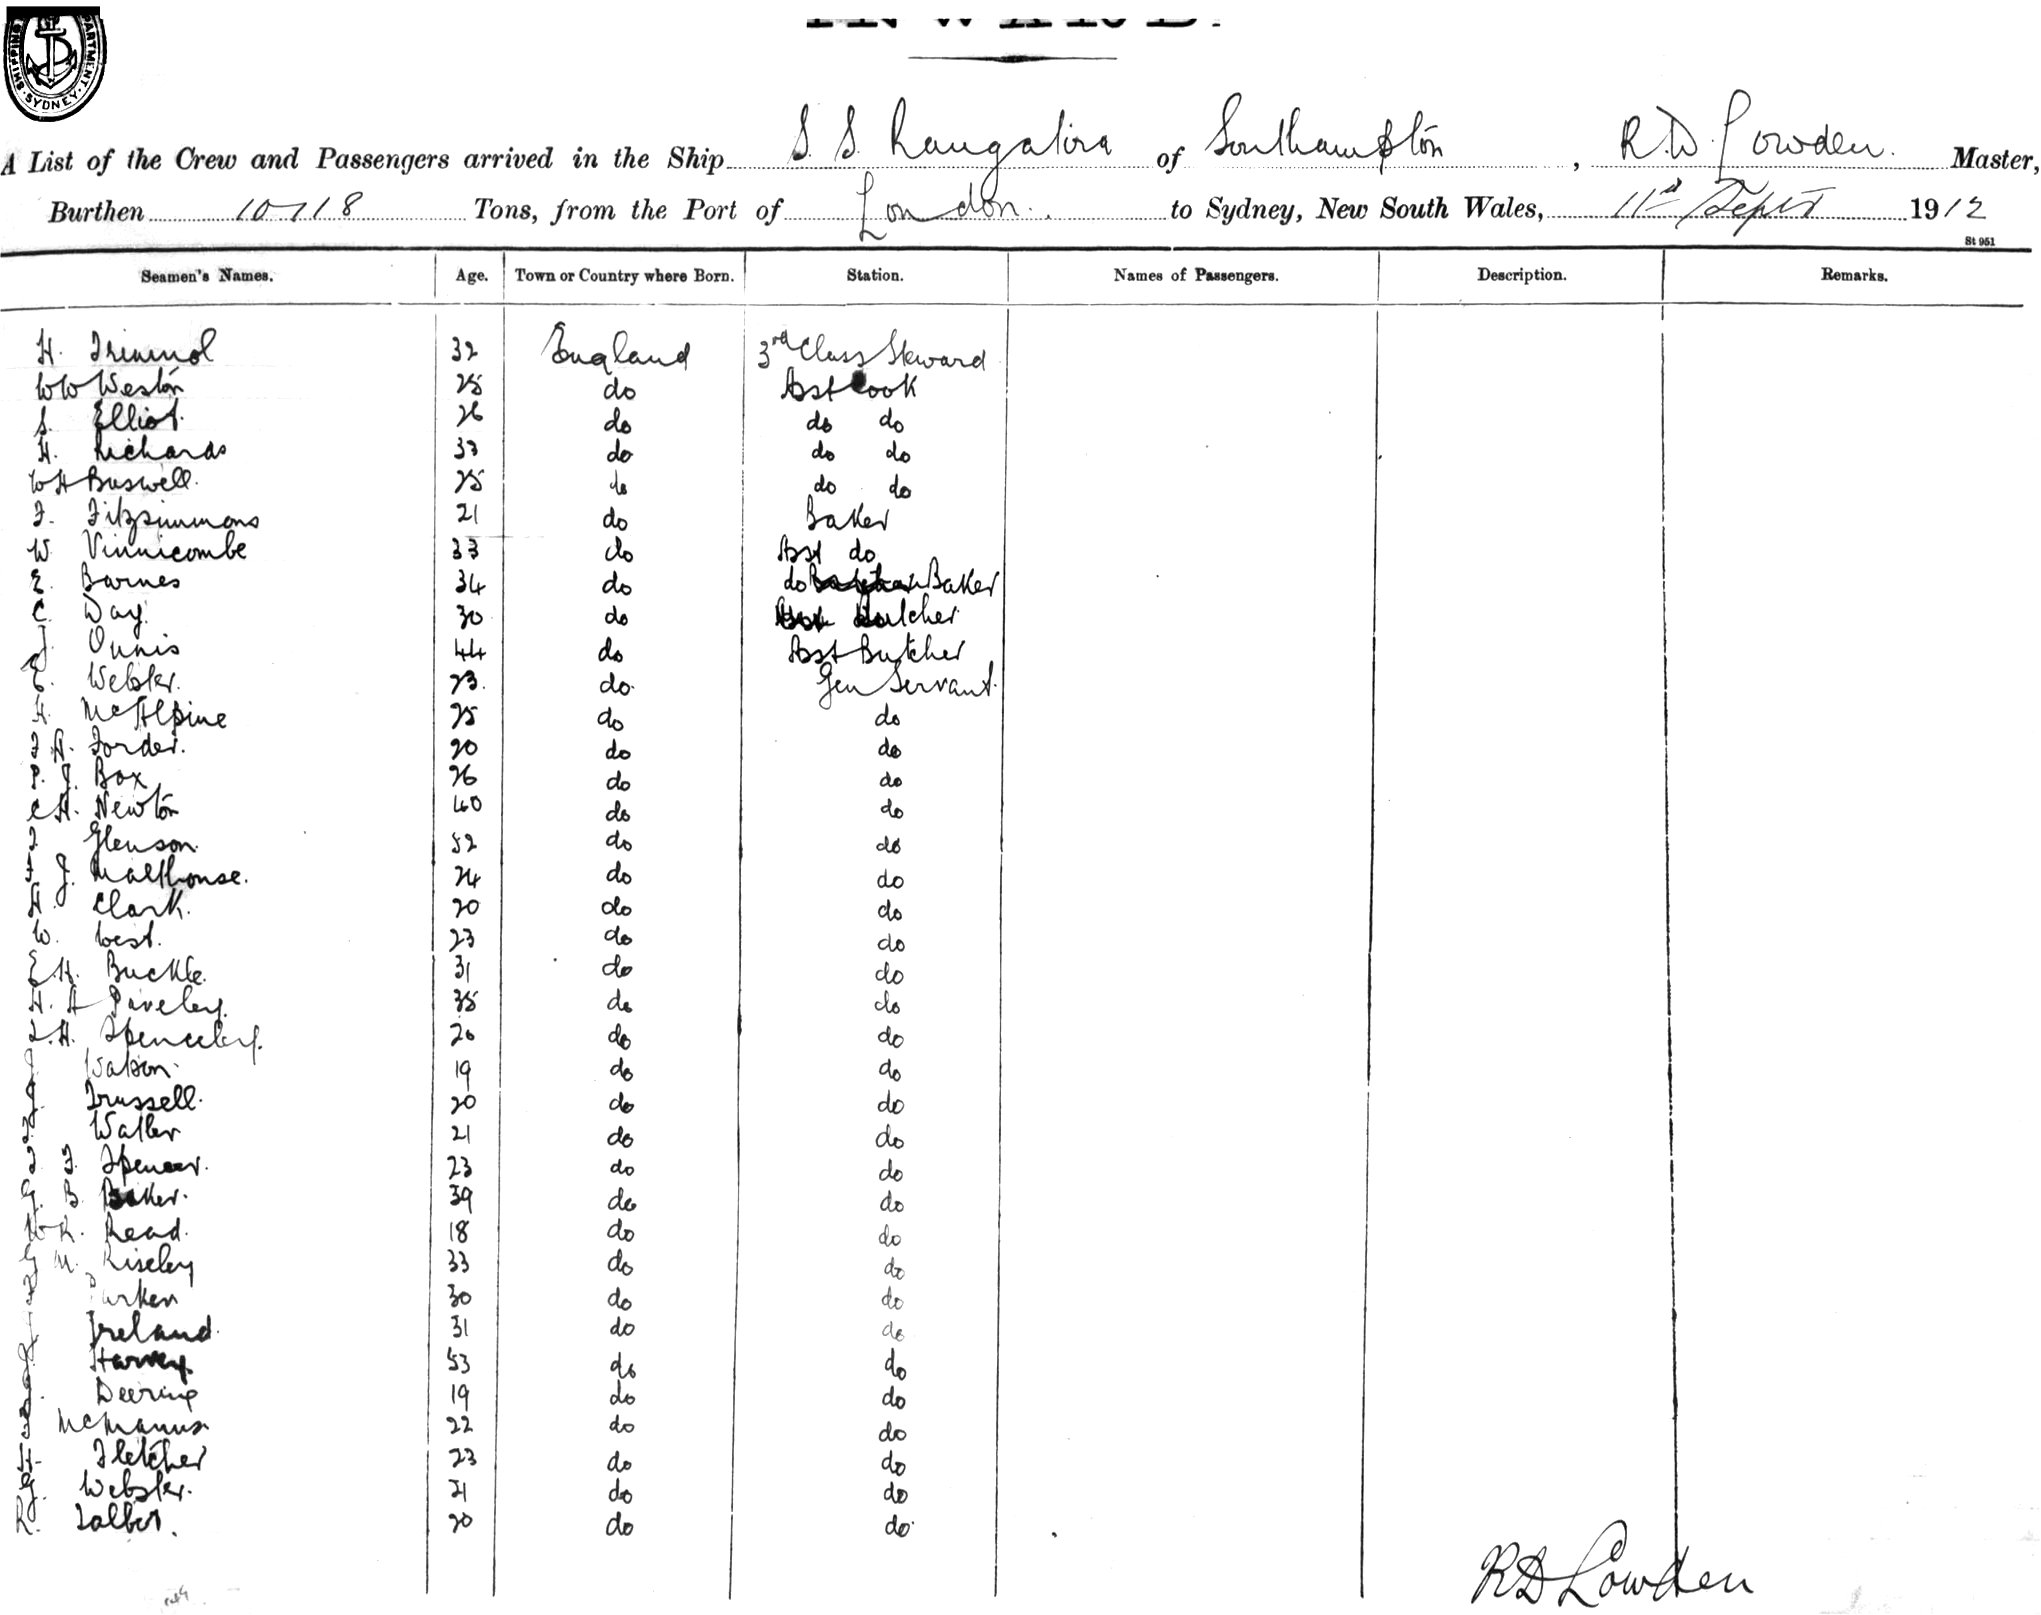 SHIPPING DEPARTMENT SYDNEY
INWARD.
A List of the Crew and Passengers arrived in the Ship S. S. Rangatira of Southampton, R.D. Lowden. Master,
Burthen 10118 Tons, from the Port of London. to Sydney, New South Wales, 11th Septr 1912
St 951
Seamen's Names. Age. Town or Country where Born. Station. Names of Passengers. Description. Remarks.
H. 32 England 3rd Class Steward
WW Weston 25 do Asst Cook
S. Elliot. 26 do do do
H. Richards 33 do do do
WH Buswell. 25 do do do
F. Fitzsimmons 21 do Baker
W. Vinnicombe 33 do Asst do
E. Barnes 34 do do Baker
C. Day 30 do Butcher
J. Onnis 44 do Asst Butcher
E. Webster. 23. do. Gen Servant.
H. McAlpine 25 do do
F A. Forder. 20 do do
P. J. Box 26 do do
C H. Newton 40 do do
Gleuson. 52 do do
J. Malthouse. 24 do do
A. Clark. 20 do do
W. West. 23 do do
E H. Buckle. 31 do do
H. A Paveley. 35 do do
H. Spenceley. 26 do do
Watson. 19 do do
Trussell. 20 do do
Waller 21 do do
Spencer. 23 do do
B. Baker. 39 do do
R. Read. 18 do do
M. Riseley 33 do do
Parker 30 do do
Ireland. 31 do do
Harvey 53 do do
Deering 19 do do
McManus. 22 do do
Fletcher 23 do do
Webster. 21 do do
R. Talbot. 20 do do.
RD Lowden